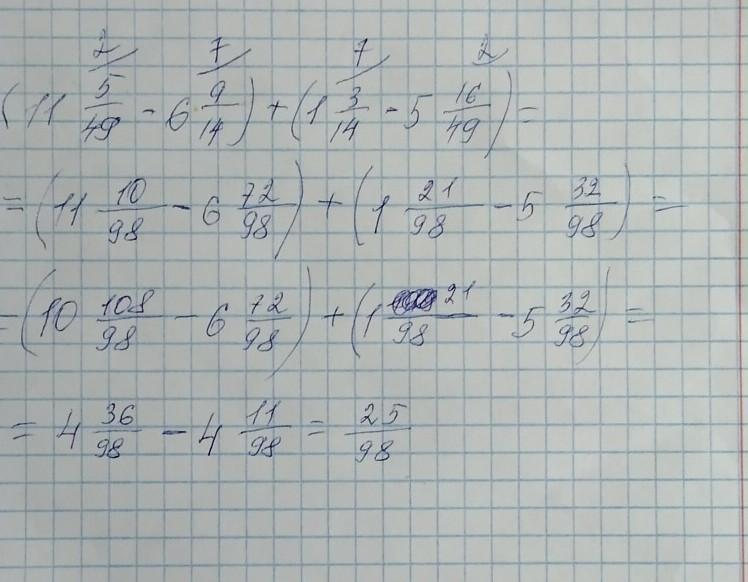 2 7 7 2
(11 5/49 - 6 9/14) + (1 3/14 - 5 16/49) =
= (11 10/98 - 6 72/98) + (1 21/98 - 5 32/98) =
= (10 108/98 - 6 72/98) + (1 21/98 - 5 32/98) =
= 4 36/98 - 4 11/98 = 25/98